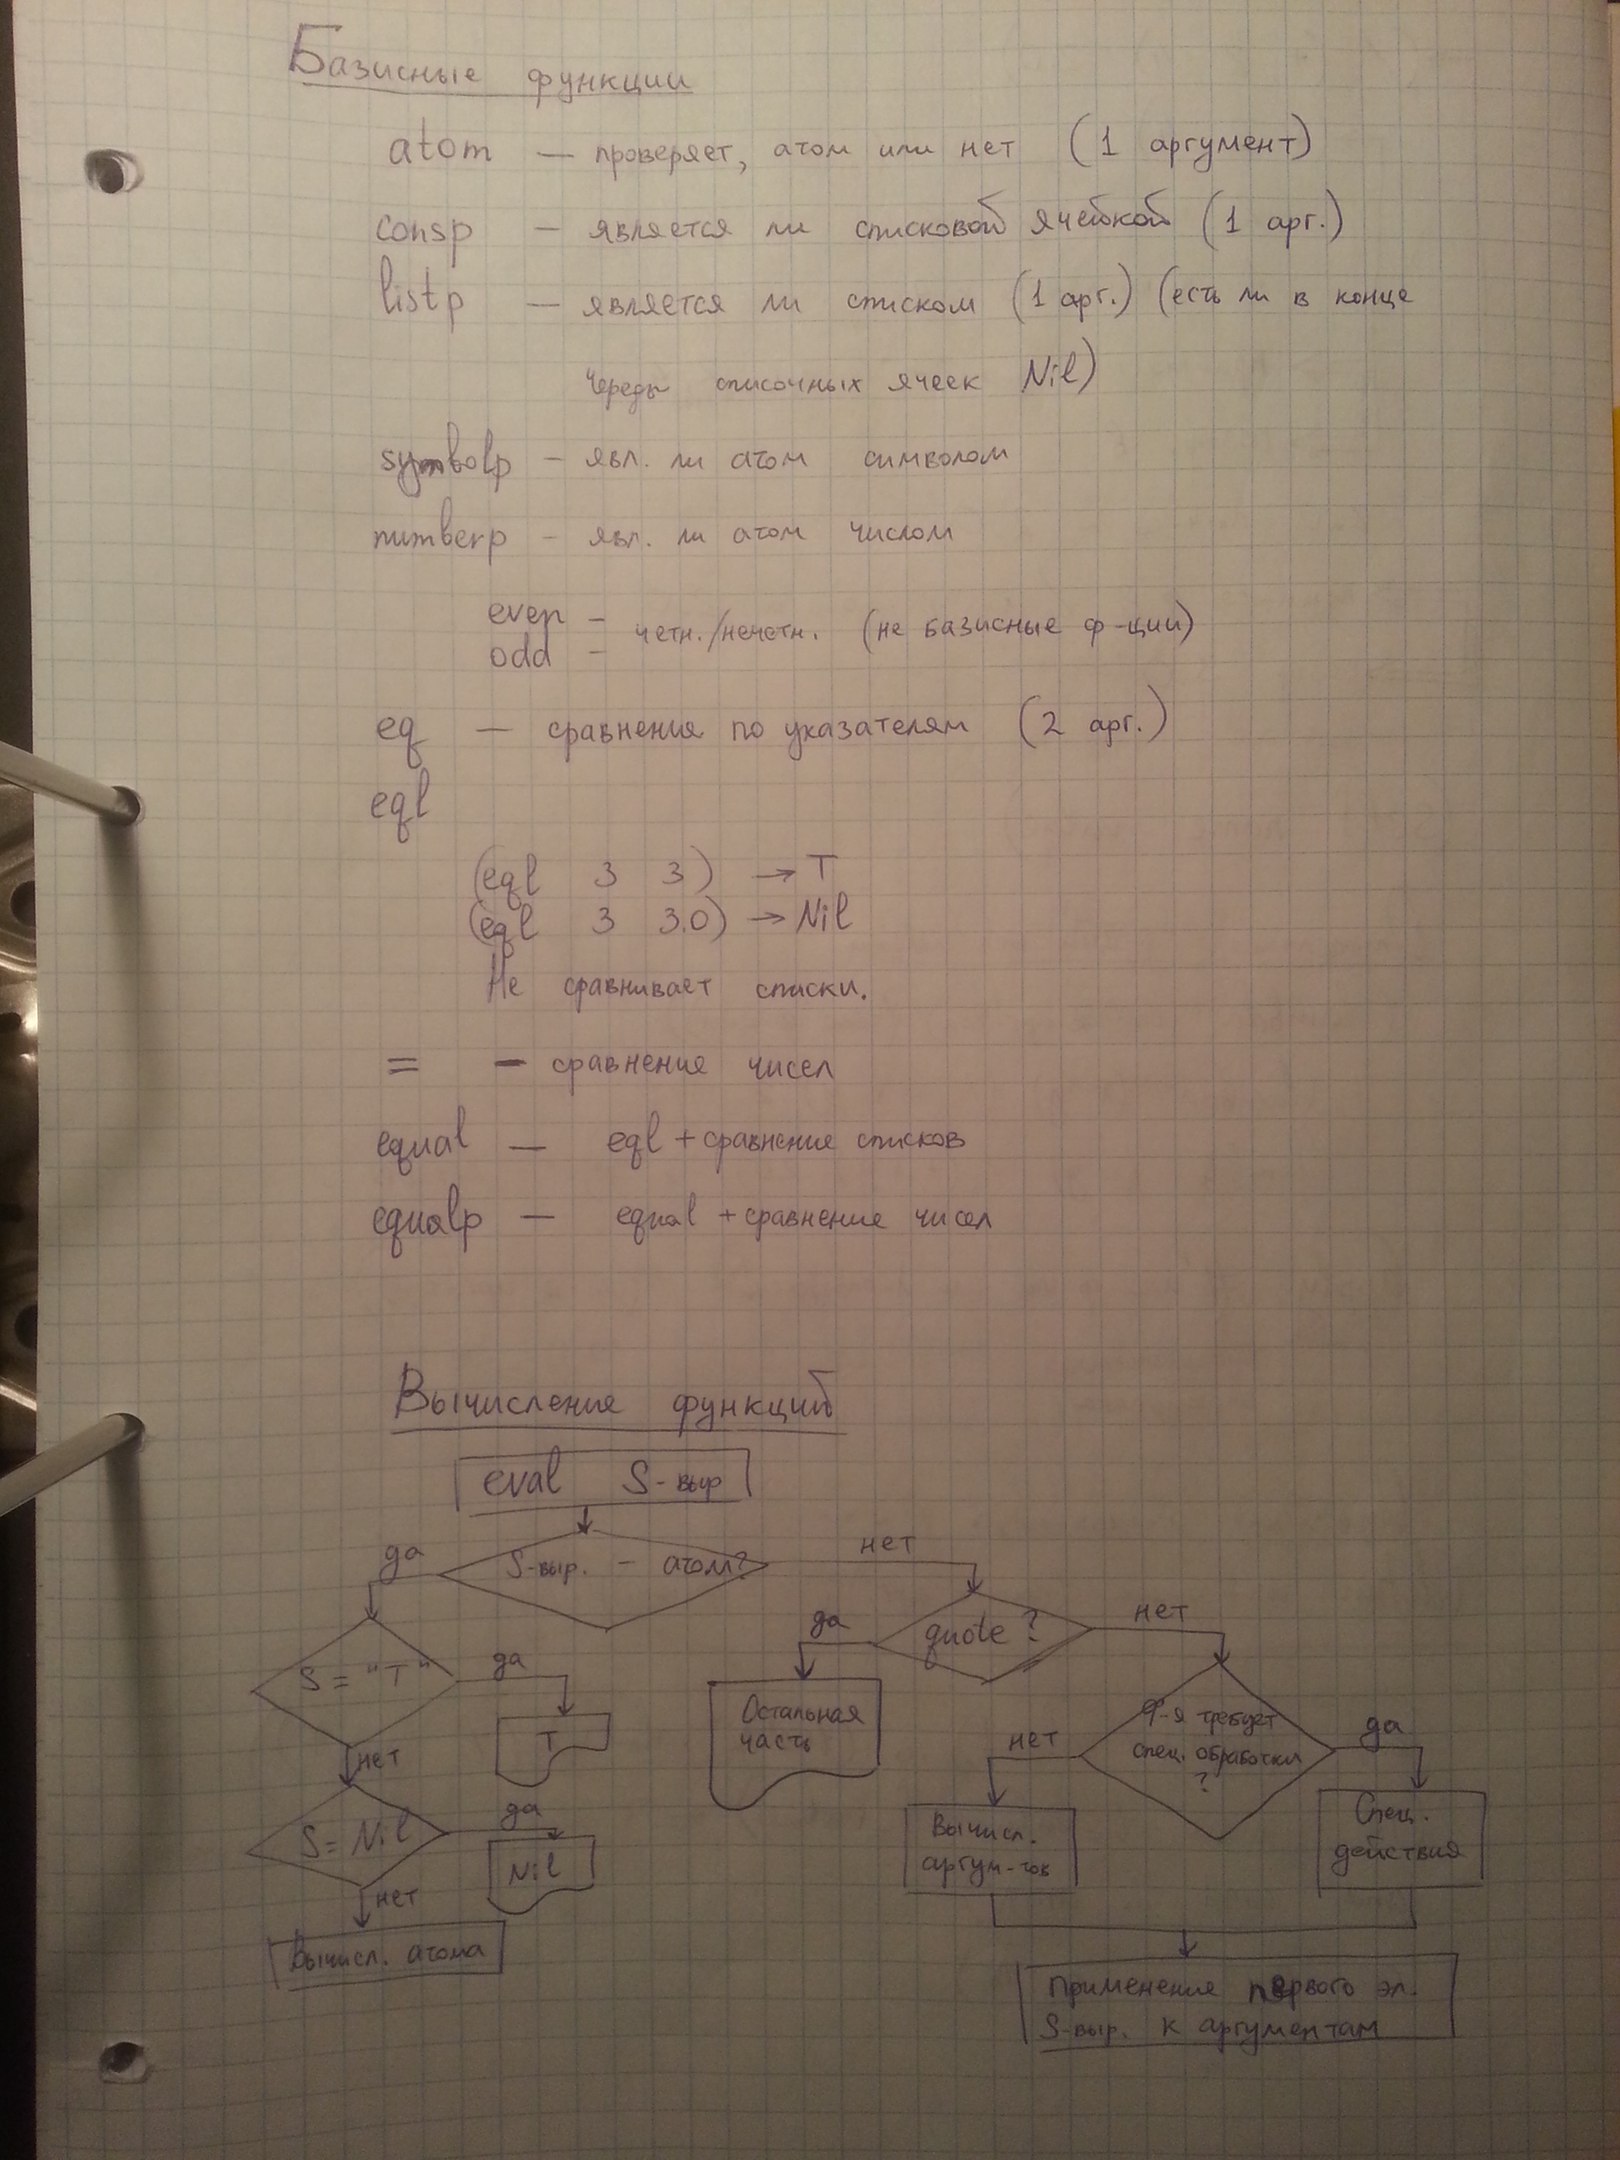 Базисные функции
atom — проверяет, атом или нет (1 аргумент)
consp — является ли списковой ячейкой (1 арг.)
listp — является ли списком (1 арг.) (есть ли в конце
череды списочных ячеек Nil)
symbolp – явл. ли атом символом
numberp – явл. ли атом числом
even –
odd –
четн./нечетн. (не базисные ф-ции)
eq — сравнения по указателям (2 арг.)
eql
(eql 3 3) → T
(eql 3 3.0) → Nil
Не сравнивает списки.
= — сравнение чисел
equal — eql + сравнение списков
equalp — equal + сравнение чисел
Вычисление функций
eval S-выр
S-выр. – атом?
да
нет
quote ?
да
нет
S = "T"
да
T
нет
Остальная
часть
Ф-я требует
спец. обработки
?
нет
да
S = Nil
да
Nil
нет
Вычисл.
аргум-тов
Спец.
действия
Вычисл. атома
Применение первого эл.
S-выр. к аргументам